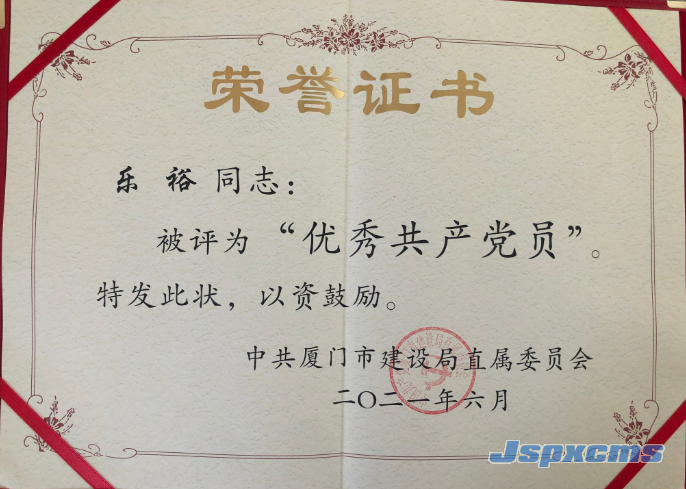 荣誉证书
乐 裕 同志：
被评为“优秀共产党员”。
特发此状，以资鼓励。
中共厦门市建设局直属委员会
二〇二一年六月
Jspxcms